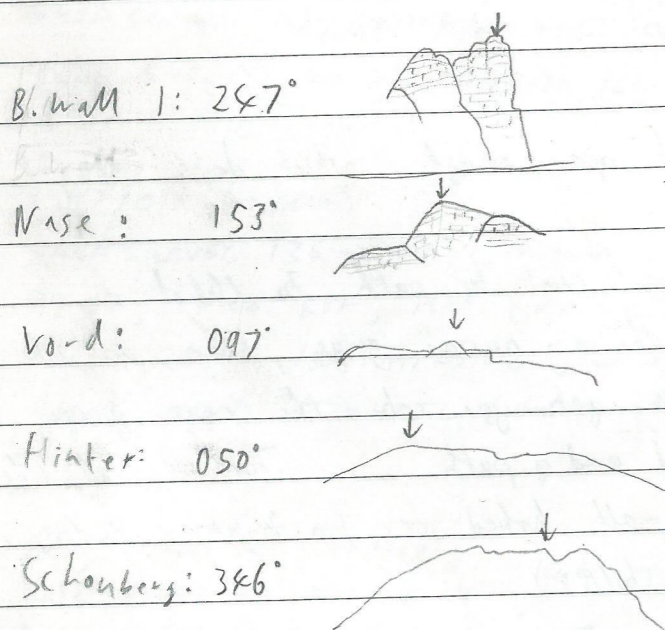 B.wall 1: 247°
Nase: 153°
Vord: 097°
Hinter: 050°
Schonberg: 346°